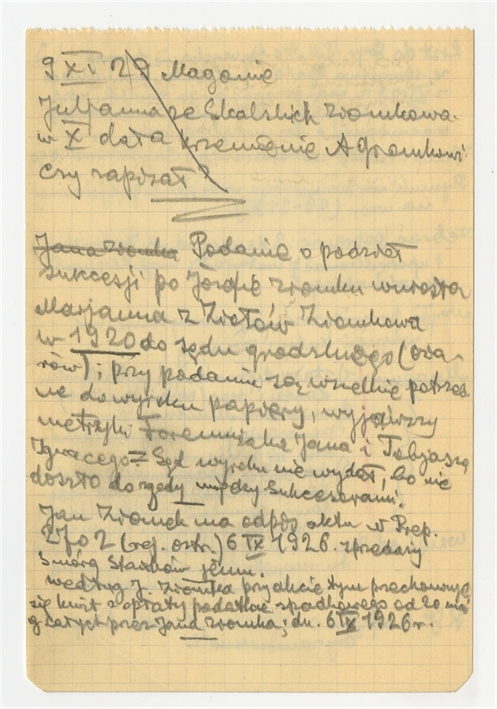 9 XI 28 Magonie
Juljanna ze Skalskich Ziomkowa
w X dała krzemienie A Gromkowi
czy zapisał?
Jana Ziomka Podanie o podział
sukcesji po Józefie Ziomku wniosła
Marjanna z Ziołów Ziomkowa
w 1920 do sądu grodzkiego (
); przy podaniu są wszelkie potrzeb
ne do wyroku papiery, wyjąwszy
metryki Jana i Tobjasza
Ignacego = Sąd wyroku nie wydał, bo nie
doszło do zgody między sukcesorami.
Jan Ziomek ma odpis aktu N Rep.
2702 (rej. ostr.) 6 IX 1926. sprzedaży
jemu.
według J. Ziomka przy akcie tym przechowuje
się kwit z opłaty podatku spadkowego od 20
przez Jana Ziomka; dn. 6 IX 1926 r.